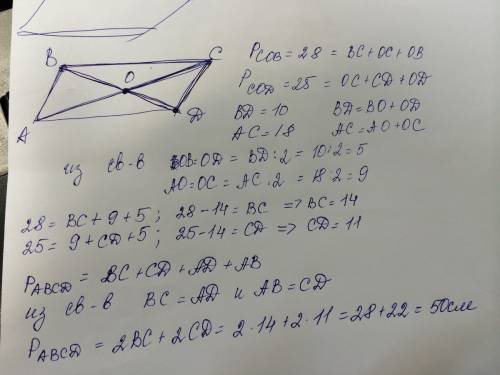 B
C
O
A
D
P_COB = 28 = BC + OC + OB
P_COD = 25 = OC + CD + OD
BD = 10    BD = BO + OD
AC = 18    AC = AO + OC
из св-в    OB = OD = BD : 2 = 10 : 2 = 5
AO = OC = AC : 2 = 18 : 2 = 9
28 = BC + 9 + 5 ; 28 - 14 = BC => BC = 14
25 = 9 + CD + 5 ; 25 - 14 = CD => CD = 11
P_ABCD = BC + CD + AD + AB
из св-в    BC = AD и AB = CD
P_ABCD = 2BC + 2CD = 2·14 + 2·11 = 28 + 22 = 50см